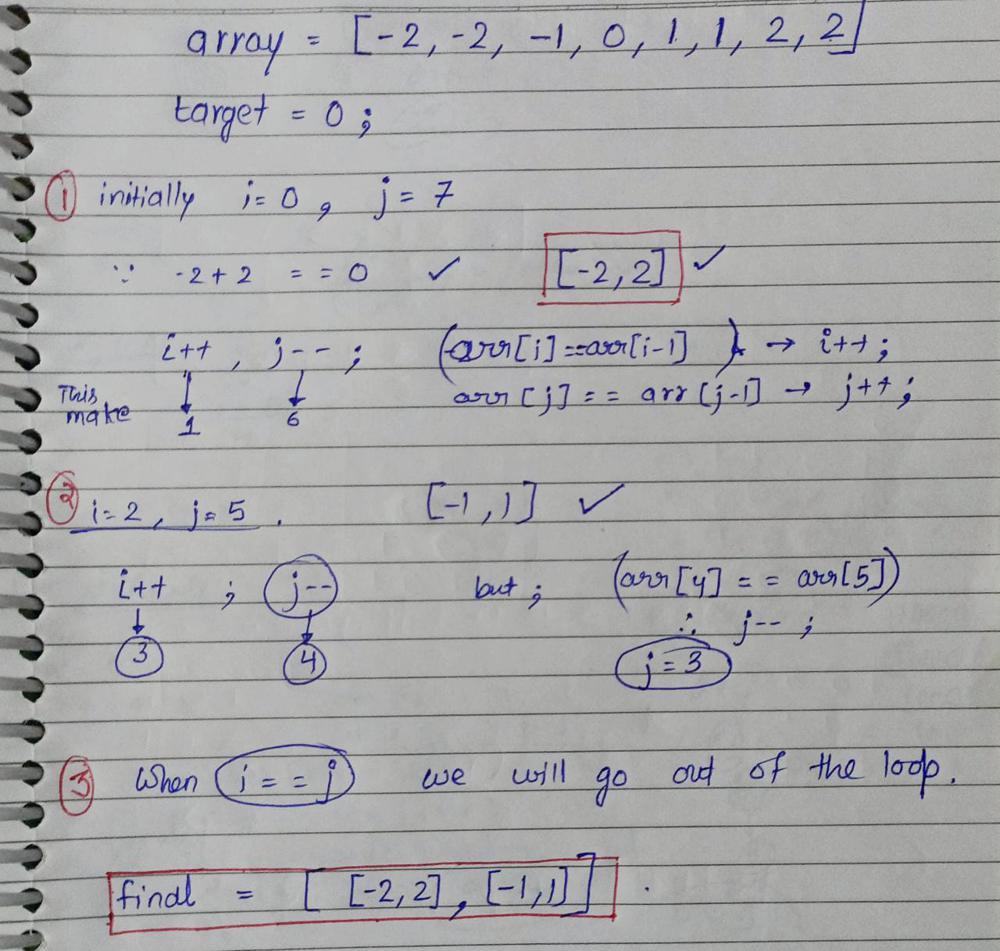 array = [-2, -2, -1, 0, 1, 1, 2, 2]
target = 0 ;
① initially i = 0 , j = 7
∵ -2 + 2 = = 0 ✓ [-2, 2] ✓
i++ , j-- ; (arr[i]==arr[i-1]) → i++ ;
This make 1 6 arr[j] == arr[j-1] → j++ ;
② i = 2 , j = 5 . [-1, 1] ✓
i++ ; j-- but ; (arr[4] = = arr[5])
∴ j-- ;
3 4 j = 3
③ When i = = j we will go out of the loop.
final = [ [-2, 2] , [-1, 1] ] .